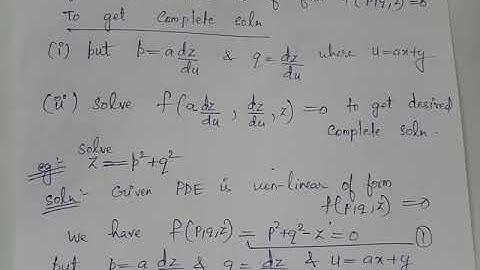 of form f(p,q,z)=0
To get Complete soln
(i) put p=a dz/du & q=dz/du where u=ax+y
(ii) solve f(a dz/du, dz/du, z)=0 to get desired
Complete soln.
eg:- solve z=p²+q²
soln:- Given PDE is non-linear of form
f(p,q,z)=0
we have f(p,q,z)=p²+q²-z=0 ①
put p=a dz/du & q=dz/du & u=ax+y